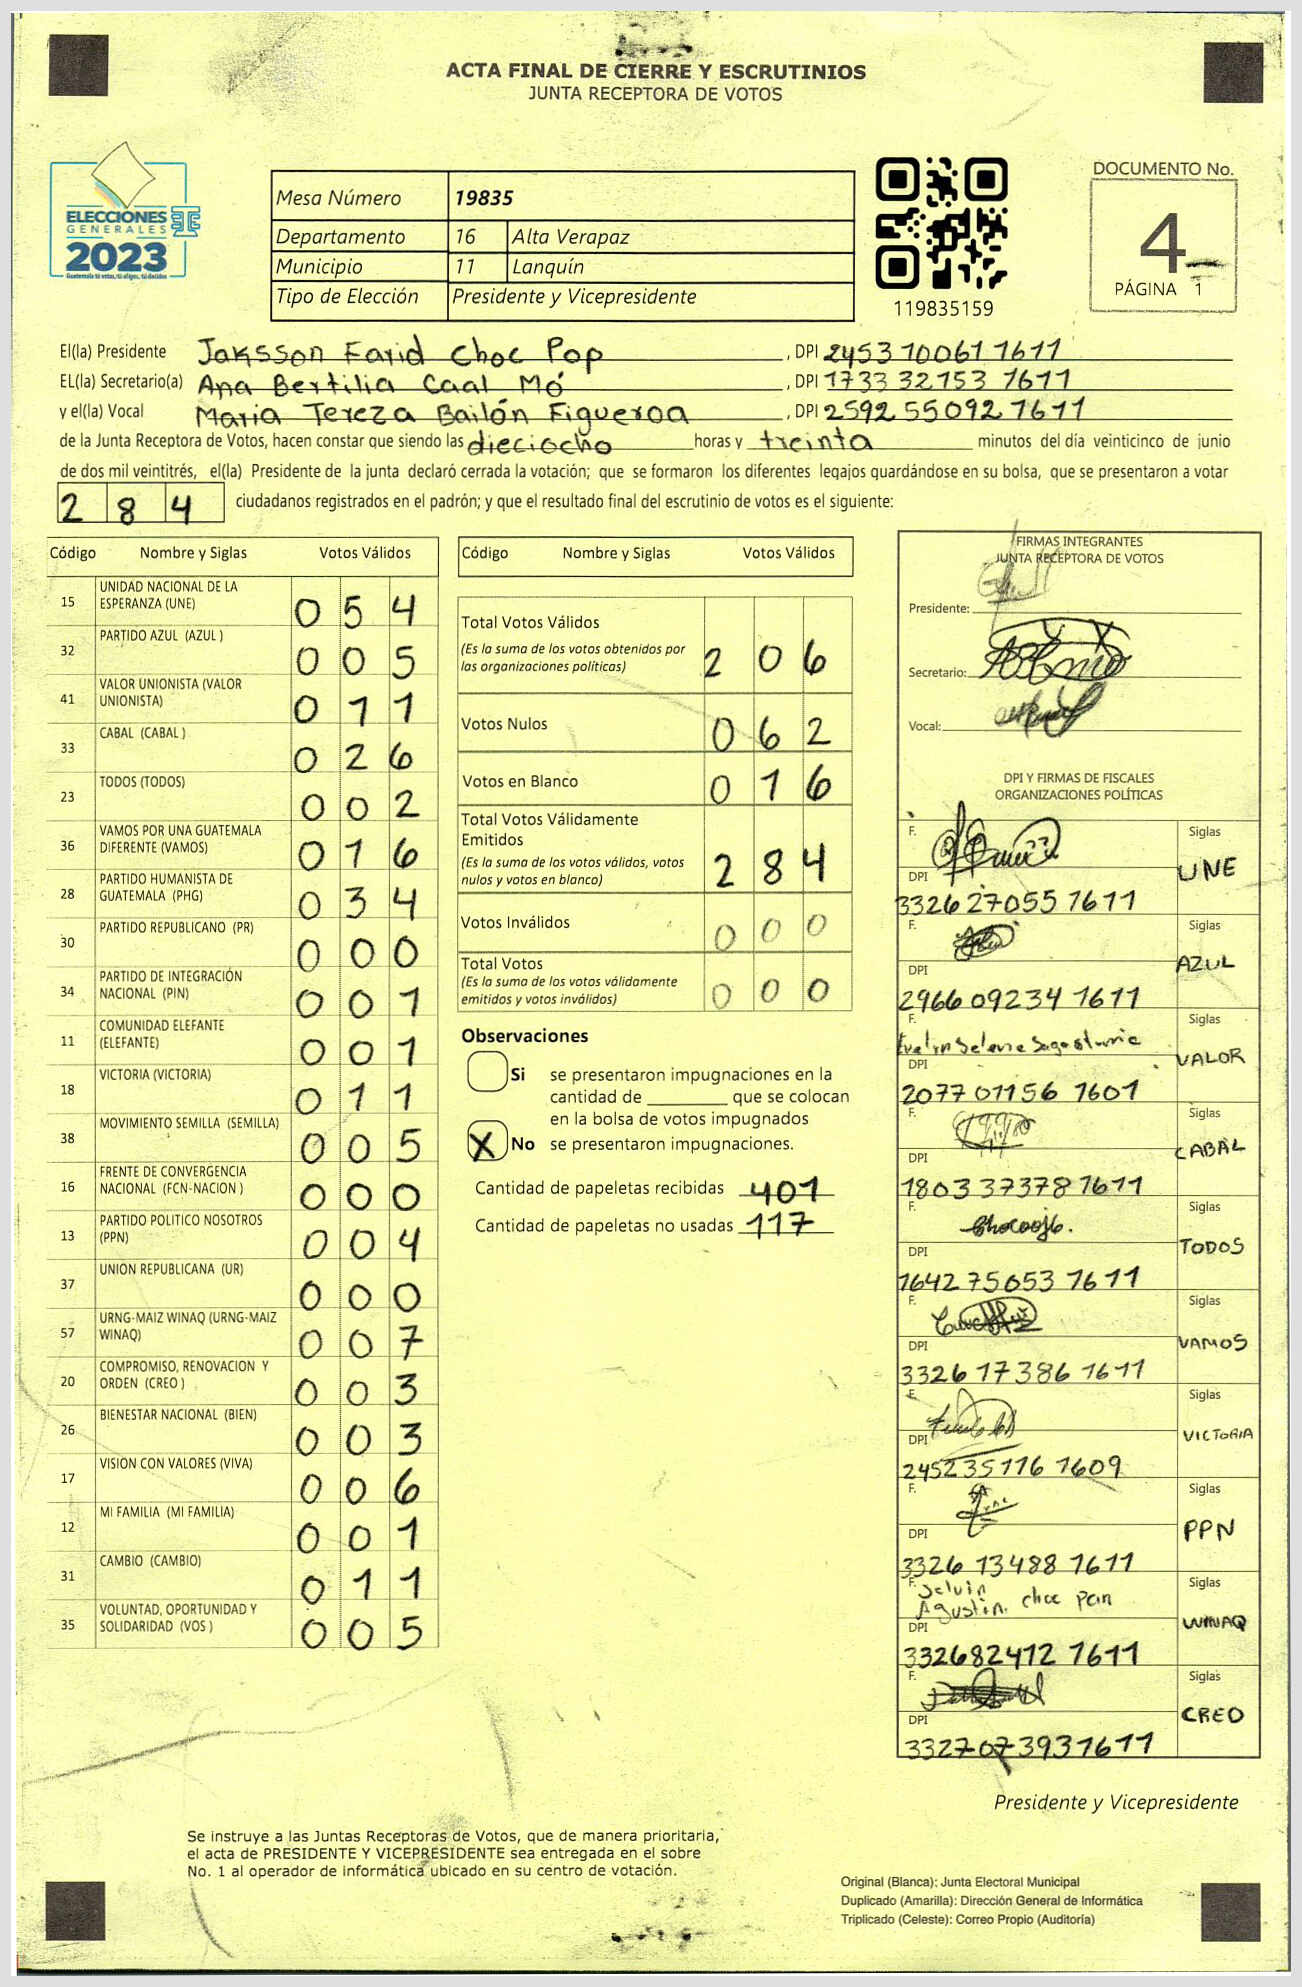 ACTA FINAL DE CIERRE Y ESCRUTINIOS
JUNTA RECEPTORA DE VOTOS
ELECCIONES
GENERALES
2023
Guatemala: tú votas, tú eliges, tú decides
Mesa Número 19835
Departamento 16 Alta Verapaz
Municipio 11 Lanquín
Tipo de Elección Presidente y Vicepresidente
119835159
DOCUMENTO No.
4
PÁGINA 1
El(la) Presidente Jaksson Farid Choc Pop, DPI 2453 10061 1611
EL(la) Secretario(a) Ana Bertilia Caal Mó, DPI 1733 32153 1611
y el(la) Vocal Maria Tereza Bailón Figueroa, DPI 2592 55092 1611
de la Junta Receptora de Votos, hacen constar que siendo las dieciocho horas y treinta minutos del día veinticinco de junio
de dos mil veintitrés, el(la) Presidente de la junta declaró cerrada la votación; que se formaron los diferentes legajos quardándose en su bolsa, que se presentaron a votar
284 ciudadanos registrados en el padrón; y que el resultado final del escrutinio de votos es el siguiente:
Código Nombre y Siglas Votos Válidos
15 UNIDAD NACIONAL DE LA
ESPERANZA (UNE) 054
32 PARTIDO AZUL (AZUL ) 005
41 VALOR UNIONISTA (VALOR
UNIONISTA) 011
33 CABAL (CABAL ) 026
23 TODOS (TODOS) 002
36 VAMOS POR UNA GUATEMALA
DIFERENTE (VAMOS) 016
28 PARTIDO HUMANISTA DE
GUATEMALA (PHG) 034
30 PARTIDO REPUBLICANO (PR) 000
34 PARTIDO DE INTEGRACIÓN
NACIONAL (PIN) 001
11 COMUNIDAD ELEFANTE
(ELEFANTE) 001
18 VICTORIA (VICTORIA) 011
38 MOVIMIENTO SEMILLA (SEMILLA) 005
16 FRENTE DE CONVERGENCIA
NACIONAL (FCN-NACION ) 000
13 PARTIDO POLITICO NOSOTROS
(PPN) 004
37 UNION REPUBLICANA (UR) 000
57 URNG-MAIZ WINAQ (URNG-MAIZ
WINAQ) 007
20 COMPROMISO, RENOVACION Y
ORDEN (CREO ) 003
26 BIENESTAR NACIONAL (BIEN) 003
17 VISION CON VALORES (VIVA) 006
12 MI FAMILIA (MI FAMILIA) 001
31 CAMBIO (CAMBIO) 011
35 VOLUNTAD, OPORTUNIDAD Y
SOLIDARIDAD (VOS ) 005
Código Nombre y Siglas Votos Válidos
Total Votos Válidos
(Es la suma de los votos obtenidos por
las organizaciones políticas) 206
Votos Nulos 062
Votos en Blanco 016
Total Votos Válidamente
Emitidos
(Es la suma de los votos válidos, votos
nulos y votos en blanco) 284
Votos Inválidos 000
Total Votos
(Es la suma de los votos válidamente
emitidos y votos inválidos) 000
Observaciones
Si se presentaron impugnaciones en la
cantidad de ________ que se colocan
en la bolsa de votos impugnados
X No se presentaron impugnaciones.
Cantidad de papeletas recibidas 401
Cantidad de papeletas no usadas 117
FIRMAS INTEGRANTES
JUNTA RECEPTORA DE VOTOS
Presidente:
Secretario:
Vocal:
DPI Y FIRMAS DE FISCALES
ORGANIZACIONES POLÍTICAS
F. Siglas
DPI UNE
3326 27055 1611
F. Siglas
DPI AZUL
2966 09234 1611
F. Siglas
DPI VALOR
2077 01156 1601
F. Siglas
DPI CABAL
1803 37378 1611
F. Siglas
DPI TODOS
1642 75053 1611
F. Siglas
DPI VAMOS
3326 17386 1611
F. Siglas
DPI VICTORIA
2452 35116 1609
F. Siglas
DPI PPN
3326 13488 1611
F. Selvin Siglas
Agustin choc pan
DPI WINAQ
3326 82412 1611
F. Siglas
DPI CREO
3327 07393 1611
Presidente y Vicepresidente
Se instruye a las Juntas Receptoras de Votos, que de manera prioritaria,
el acta de PRESIDENTE Y VICEPRESIDENTE sea entregada en el sobre
No. 1 al operador de informática ubicado en su centro de votación.
Original (Blanca): Junta Electoral Municipal
Duplicado (Amarilla): Dirección General de Informática
Triplicado (Celeste): Correo Propio (Auditoría)